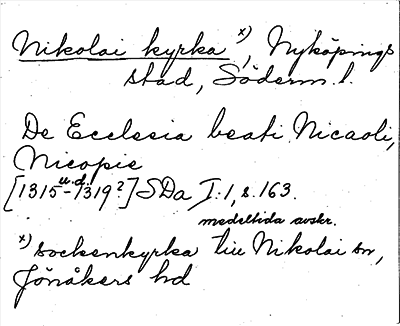 Nikolai kyrka x), Nyköpings
stad, Söderm. l.
De Ecclesia beati Nicaoli,
Nicopie
[1315 u.d. - 1319?] SDa I:1, s. 163.
medeltida avskr.
x) sockenkyrka till Nikolai sn,
Jönåkers hd